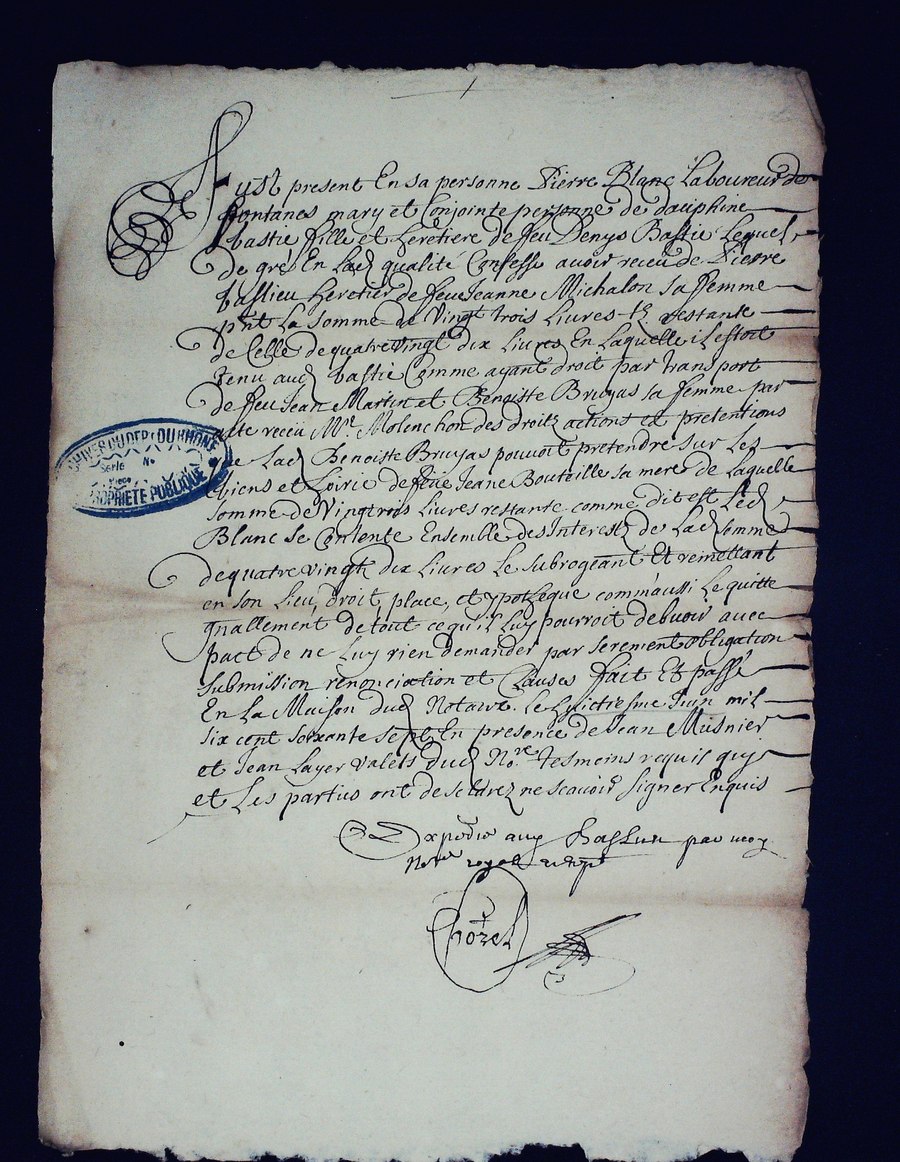 Fust present En sa personne Pierre Blanc Laboureur de
fontanes mary et Conjointe personne de dauphine
bastie fille et heretiere de feu Denys Bastie Lequel
de gré En Lad qualité Confesse avoir receu de Pierre
bastieu heretier de feue Jeanne Michalon sa femme
pnt La somme de Vingt trois Livres tz restante
de Celle de quatre vingt dix Livres En Laquelle il estoit
tenu aud bastie Comme ayant droit par transport
de feu Jean Martin et Benoiste Bruyas sa femme par
acte receu Mr Molenchon des droitz actions et pretentions
que Lad Benoiste Bruyas pouvoit pretendre sur Les
biens et Loirie de feüe Jeane Bouteille sa mere de Laquelle
somme de Vingtrois Livres restante comme dit est Led
Blanc se Contente Ensemble des Interestz de Lad somme
de quatre vingtz dix Livres Le subrogeant Et remettant
en son Lieu, droit, place, et ypoteque comm'aussi Le quitte
gnallement de tout ce qu'il Luy pourroit debvoir avec
pact de ne Luy rien demander par serement obligation
submission renonciation et Clauses fait Et passé
En La Maison dud Notaire Le huictiesme Juin mil
six cent soixante sept En presence de Jean Musnier
et Jean Layer valets dud Nore tesmoins requis quy
et Les parties ont desclarez ne scavoir signer Enquis
Expedié aux par moy
Nore royal
Chozel
ARCHIVES DU DEPt DU RHONE
Série No
Pièce
PROPRIETE PUBLIQUE